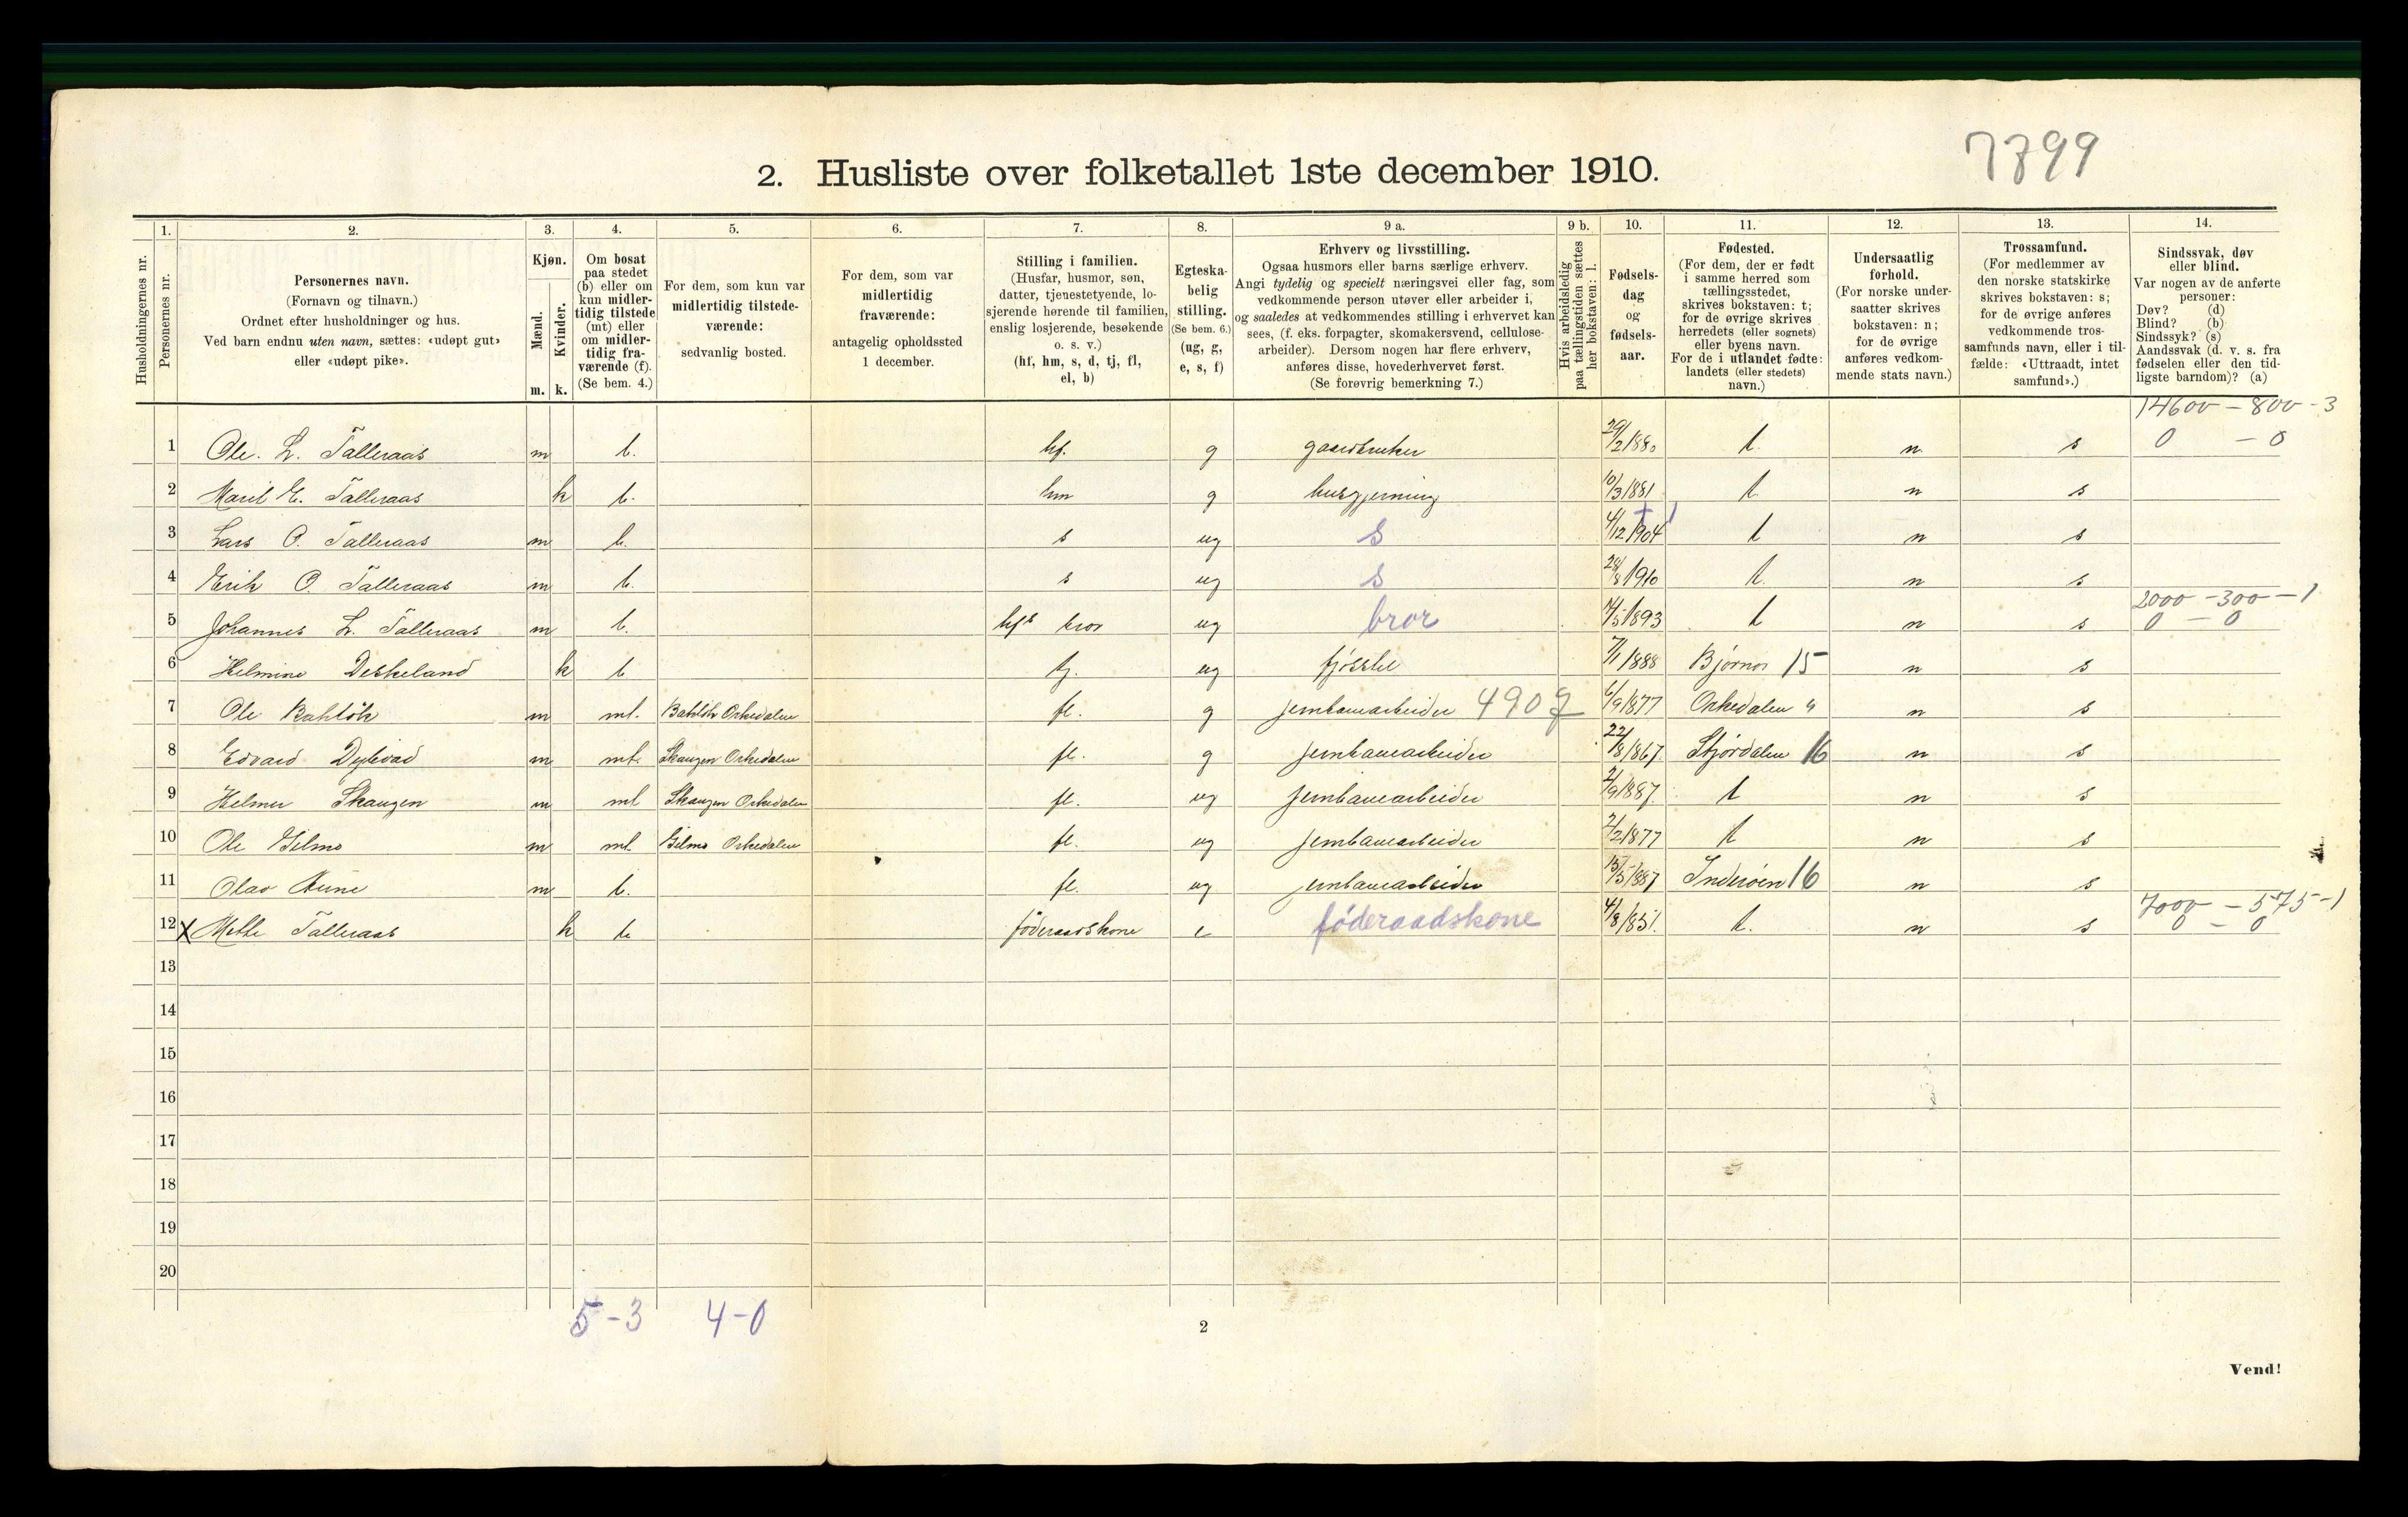 7899
2. Husliste over folketallet 1ste december 1910.
1. 2. 3. 4. 5. 6. 7. 8. 9 a. 9 b. 10. 11. 12. 13. 14.
Husholdningernes nr.
Personernes nr.
Personernes navn.
(Fornavn og tilnavn.)
Ordnet efter husholdninger og hus.
Ved barn endnu uten navn, sættes: «udøpt gut»
eller «udøpt pike».
Kjøn.
Mænd.
Kvinder.
m. k.
Om bosat
paa stedet
(b) eller om
kun midler-
tidig tilstede
(mt) eller
om midler-
tidig fra-
værende (f).
(Se bem. 4.)
For dem, som kun var
midlertidig tilstede-
værende:
sedvanlig bosted.
For dem, som var
midlertidig
fraværende:
antagelig opholdssted
1 december.
Stilling i familien.
(Husfar, husmor, søn,
datter, tjenestetyende, lo-
sjerende hørende til familien,
enslig losjerende, besøkende
o. s. v.)
(hf, hm, s, d, tj, fl,
el, b)
Egteska-
belig
stilling.
(Se bem. 6.)
(ug, g,
e, s, f)
Erhverv og livsstilling.
Ogsaa husmors eller barns særlige erhverv.
Angi tydelig og specielt næringsvei eller fag, som
vedkommende person utøver eller arbeider i,
og saaledes at vedkommendes stilling i erhvervet kan
sees, (f. eks. forpagter, skomakersvend, cellulose-
arbeider). Dersom nogen har flere erhverv,
anføres disse, hovederhvervet først.
(Se forøvrig bemerkning 7.)
Hvis arbeidsledig
paa tællingstiden sættes
her bokstaven: l.
Fødsels-
dag
og
fødsels-
aar.
Fødested.
(For dem, der er født
i samme herred som
tællingsstedet,
skrives bokstaven: t;
for de øvrige skrives
herredets (eller sognets)
eller byens navn.
For de i utlandet fødte:
landets (eller stedets)
navn.)
Undersaatlig
forhold.
(For norske under-
saatter skrives
bokstaven: n;
for de øvrige
anføres vedkom-
mende stats navn.)
Trossamfund.
(For medlemmer av
den norske statskirke
skrives bokstaven: s;
for de øvrige anføres
vedkommende tros-
samfunds navn, eller i til-
fælde: «Uttraadt, intet
samfund».)
Sindssvak, døv
eller blind.
Var nogen av de anførte
personer:
Døv? (d)
Blind? (b)
Sindssyk? (s)
Aandssvak (d. v. s. fra
fødselen eller den tid-
ligste barndom)? (a)
14600 - 800 - 3
1 Ole. L. Talleraas m b. hf. g gaardbruker 29/2 1880 t. n. s 0 - 0
2 Marit E. Talleraas k b. hm g husgjerning 10/3 1881 t. n s
3 Lars O. Talleraas m b. s ug s 4/12 1904 t n s
4 Erik O. Talleraas m b. s ug s 28/8 1910 t. n s
2000 - 300 - 1
5 Johannes L. Talleraas m b. hfs bror ug bror 4/5 1893 t n s 0 - 0
6 Helmine Deskeland k b tj. ug fjøsstel 7/1 1888 Bjørnør 15 n s
7 Ole Bahlök m mt. Bahlök Orkedalen fl. g jernbanearbeider 4907 6/9 1877 Orkedalen " n s
8 Edvard m mt. Skaugen Orkedalen fl. g jernbanearbeider 22/8 1867. Stjördalen 16 n s
9 Helmer Skaugen m mt Skaugen Orkedalen fl. ug jernbanearbeider 2/9 1887. t n s
10 Ole Gilmo m mt. Gilmo Orkedalen fl. ug jernbanearbeider 2/2 1877 t n s
11 Olav Aune m b. fl. ug jernbanearbeider 15/5 1887 Inderöen 16 n s
7000 - 575 - 1
12 X Mette Talleraas k b. föderaadskone e føderaadskone 4/8 1851. t. n s 0 - 0
13
14
15
16
17
18
19
20
5-3 4-0
2
Vend!